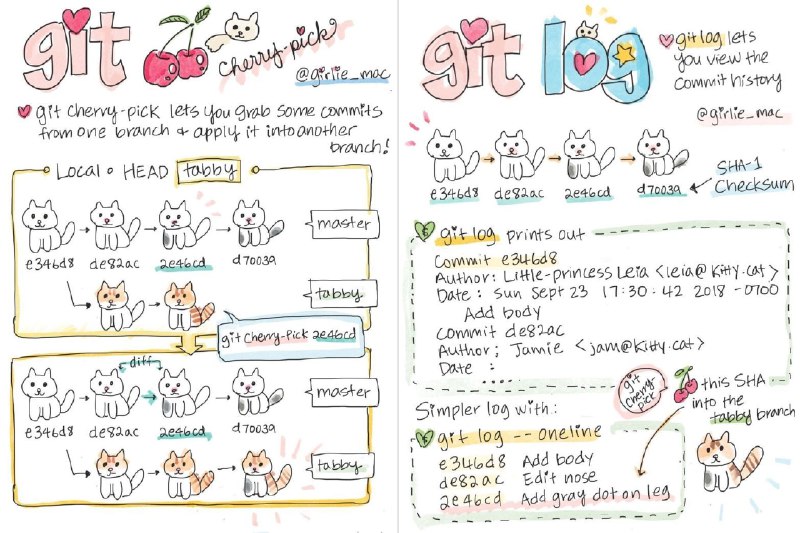 git cherry-pick
@girlie_mac
git cherry-pick lets you grab some commits
from one branch & apply it into another
branch!
Local • HEAD tabby
master
e346d8 de82ac 2e46cd d70039
tabby
git cherry-pick 2e46cd
diff
master
e346d8 de82ac 2e46cd d70039
tabby
git log
git log lets
you view the
commit history
@girlie_mac
e346d8 de82ac 2e46cd d70039
SHA-1
Checksum
git log prints out
Commit e346d8
Author: Little-princess Leia <leia@kitty.cat>
Date : Sun Sept 23 17:30:42 2018 -0700
Add body
Commit de82ac
Author; Jamie <jam@kitty.cat>
Date :
.....
Simpler log with:
git
cherry
pick
this SHA
into the
tabby branch
git log --oneline
e346d8 Add body
de82ac Edit nose
2e46cd Add gray dot on leg